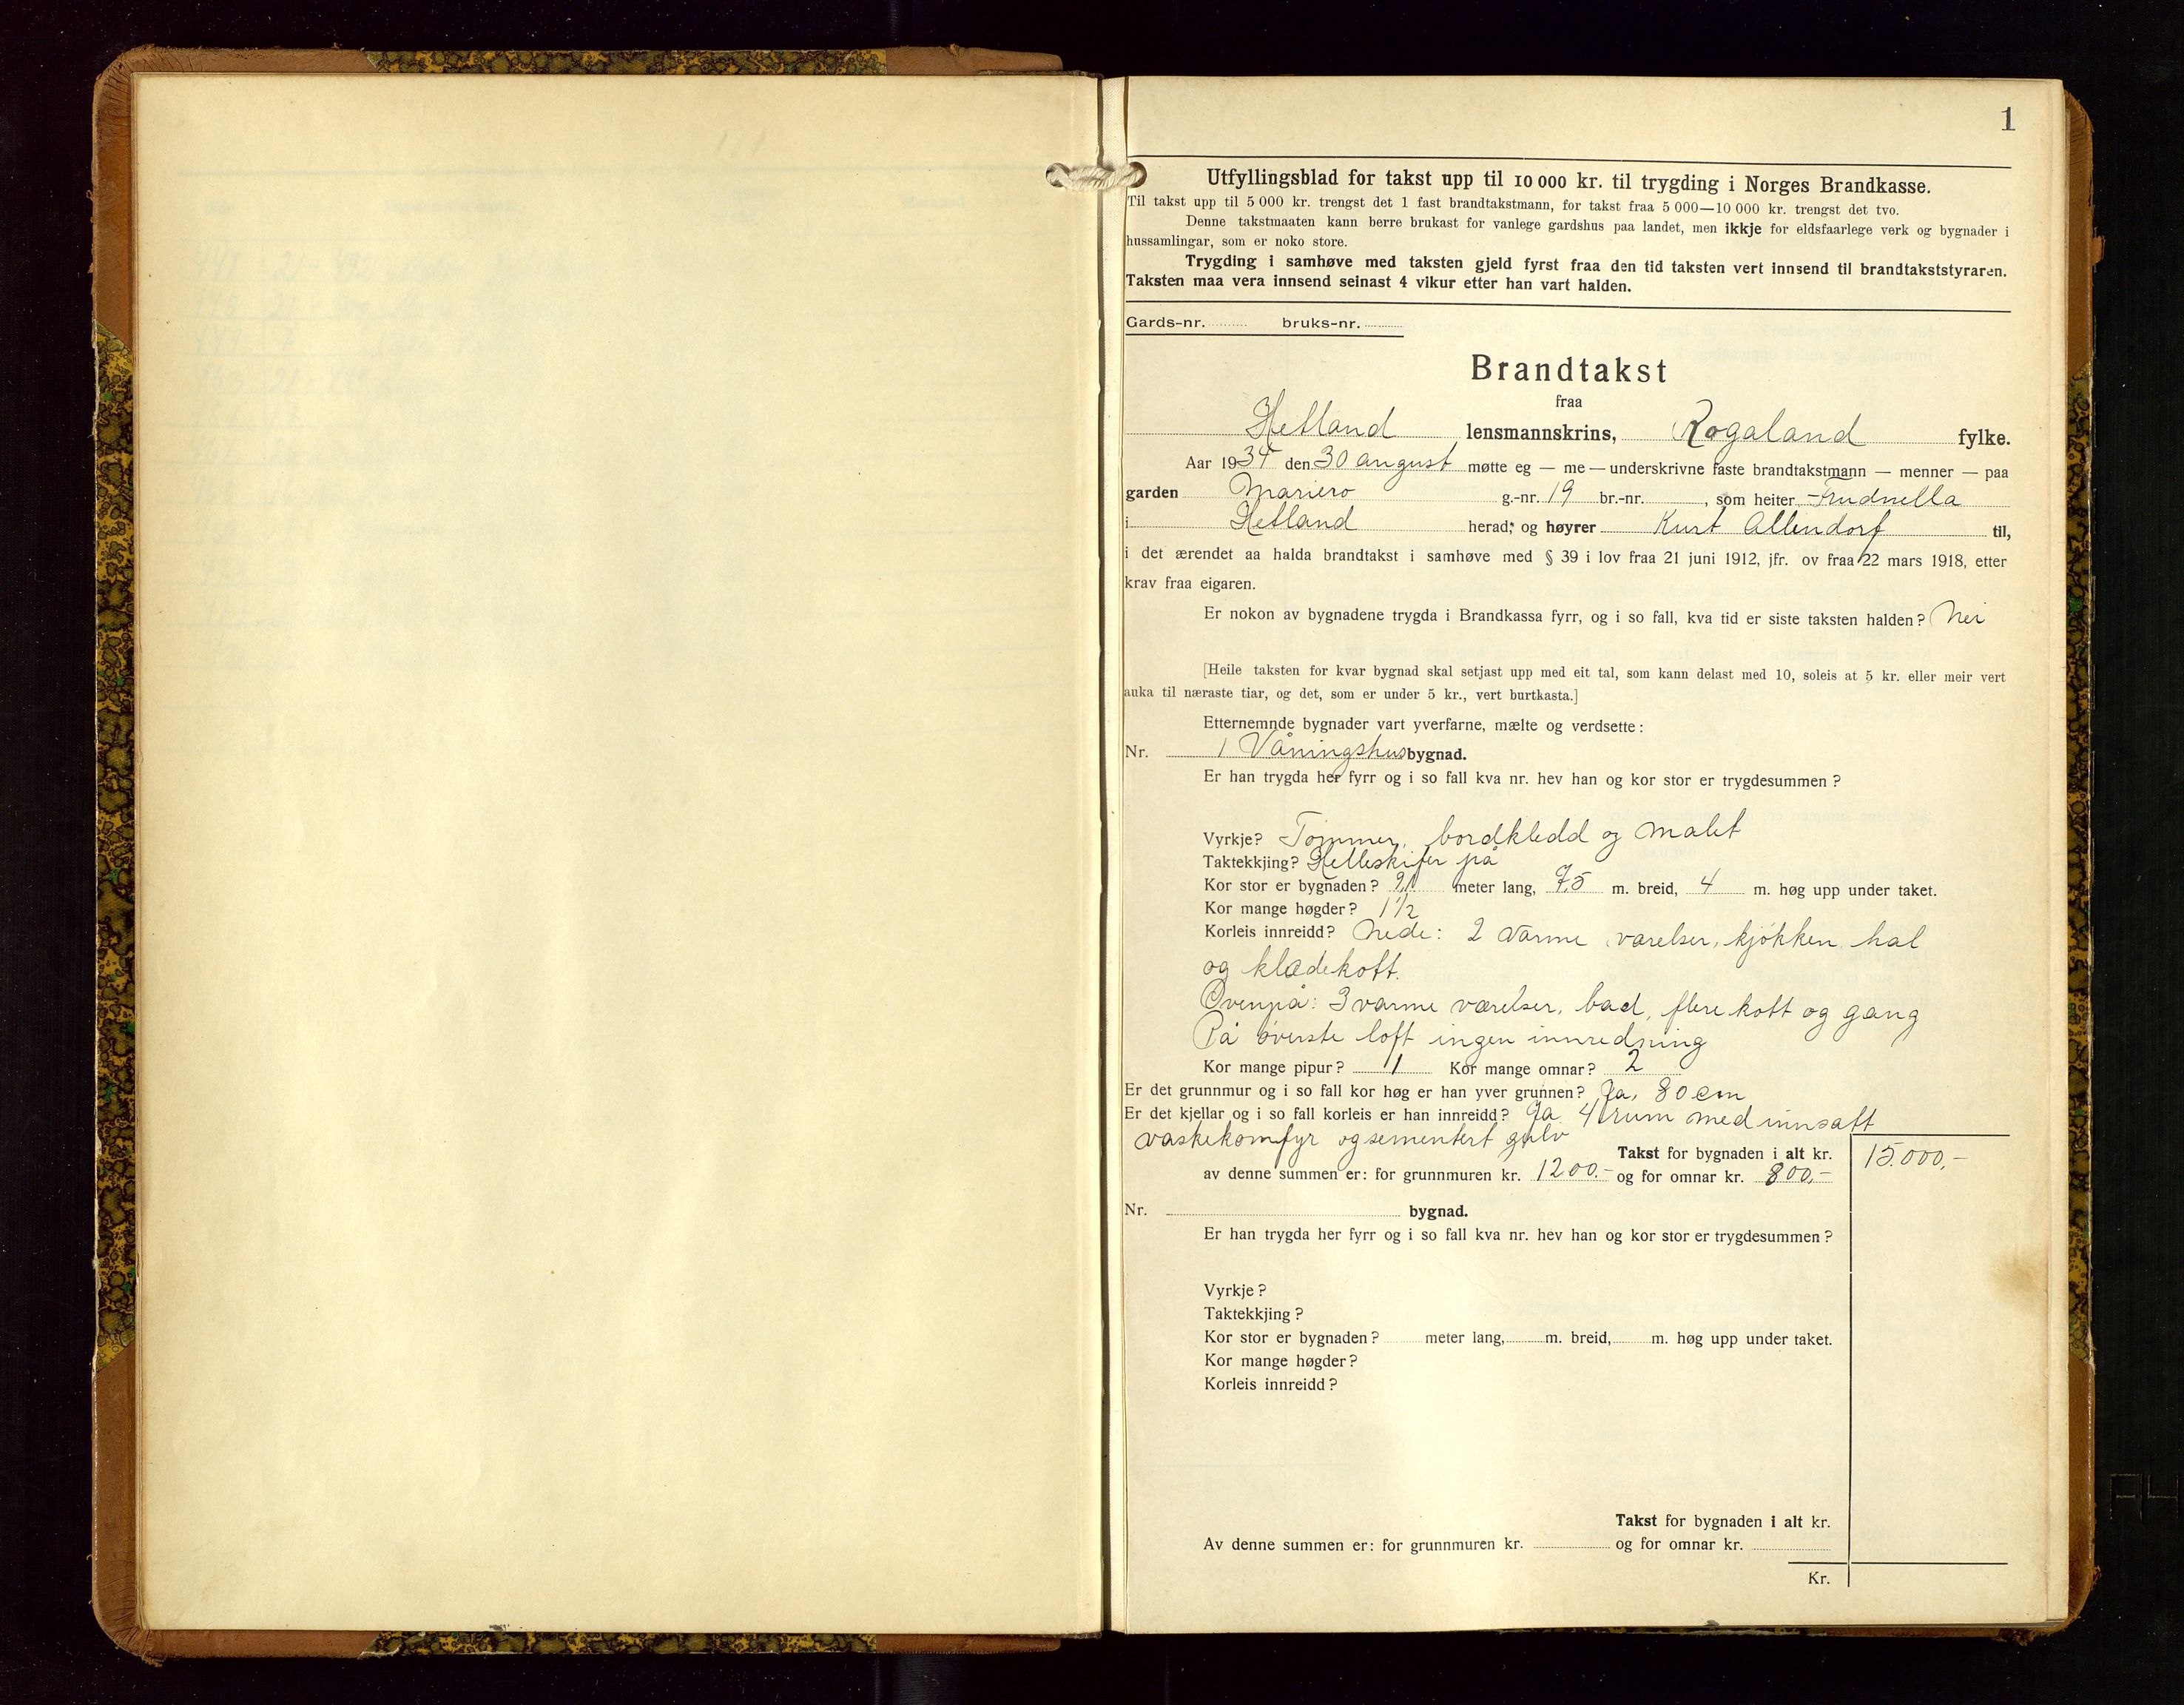 1
Utfyllingsblad for takst upp til 10 000 kr. til trygding i Norges Brandkasse.
Til takst upp til 5 000 kr. trengst det 1 fast brandtakstmann, for takst fraa 5 000—10 000 kr. trengst det tvo.
Denne takstmaaten kann berre brukast for vanlege gardshus paa landet, men ikkje for eldsfaarlege verk og bygnader i
hussamlingar, som er noko store.
Trygding i samhøve med taksten gjeld fyrst fraa den tid taksten vert innsend til brandtakststyraren.
Taksten maa vera innsend seinast 4 vikur etter han vart halden.
Gards-nr. bruks-nr.
Brandtakst
fraa
Hetland lensmannskrins, Rogaland fylke.
Aar 1934 den 30 august møtte eg — me — underskrivne faste brandtakstmann — menner — paa
garden Mariero g.-nr. 19 br.-nr. , som heiter
i Hetland herad; og høyrer Kurt Allendorf til,
i det ærendet aa halda brandtakst i samhøve med § 39 i lov fraa 21 juni 1912, jfr. ov fraa 22 mars 1918, etter
krav fraa eigaren.
Er nokon av bygnadene trygda i Brandkassa fyrr, og i so fall, kva tid er siste taksten halden? Nei
[Heile taksten for kvar bygnad skal setjast upp med eit tal, som kann delast med 10, soleis at 5 kr. eller meir vert
auka til næraste tiar, og det, som er under 5 kr., vert burtkasta.]
Etternemnde bygnader vart yverfarne, mælte og verdsette:
Nr. 1 Våningshus bygnad.
Er han trygda her fyrr og i so fall kva nr. hev han og kor stor er trygdesummen?
Vyrkje? Tømmer, bordkledd og malet
Taktekkjing? Helleskifer på
Kor stor er bygnaden? 9,1 meter lang, 7,5 m. breid, 4 m. høg upp under taket.
Kor mange høgder? 1 1/2
Korleis innreidd? Nede: 2 varme værelser, kjøkken, hal
og klædekott.
Ovenpå: 3 varme værelser, bad, flere kott og gang
På øverste loft ingen innredning
Kor mange pipur? 1 Kor mange omnar? 2
Er det grunnmur og i so fall kor høg er han yver grunnen? Ja, 80 cm
Er det kjellar og i so fall korleis er han innreidd? Ja 4 rum med innsatt
vaskekomfyr og sementert gulv
Takst for bygnaden i alt kr. 15.000,-
av denne summen er: for grunnmuren kr. 1200.- og for omnar kr. 800,-
Nr. bygnad.
Er han trygda her fyrr og i so fall kva nr. hev han og kor stor er trygdesummen?
Vyrkje?
Taktekkjing?
Kor stor er bygnaden? meter lang, m. breid, m. høg upp under taket.
Kor mange høgder?
Korleis innreidd?
Takst for bygnaden i alt kr.
Av denne summen er: for grunnmuren kr. og for omnar kr.
Kr.